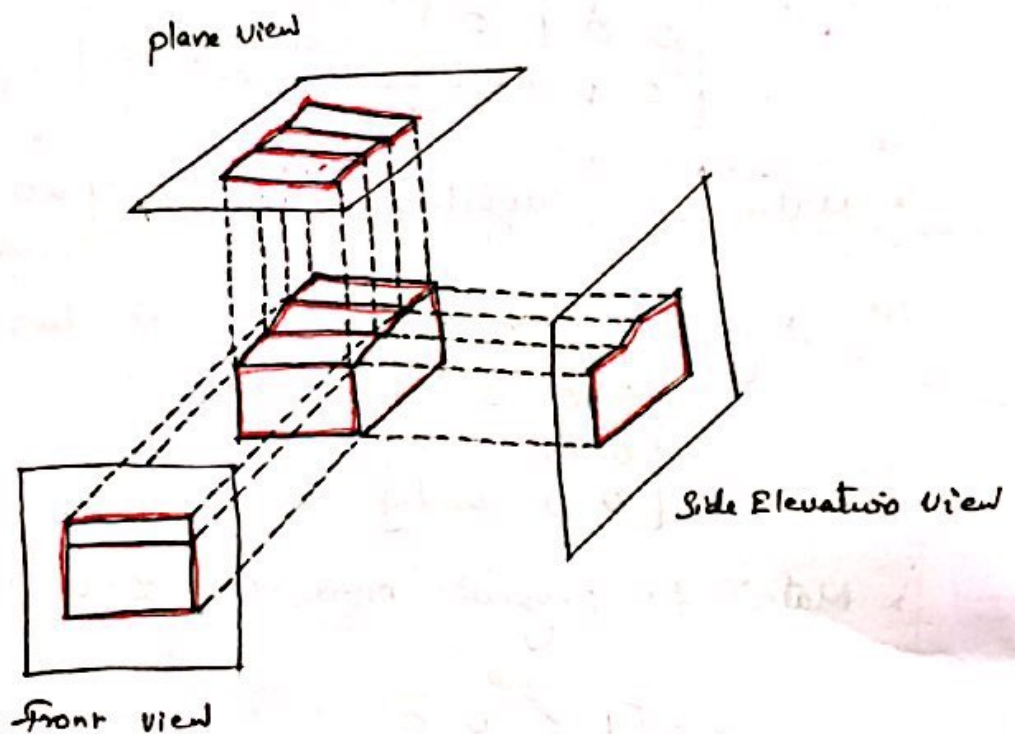 plane view
Side Elevatio's view
Front view